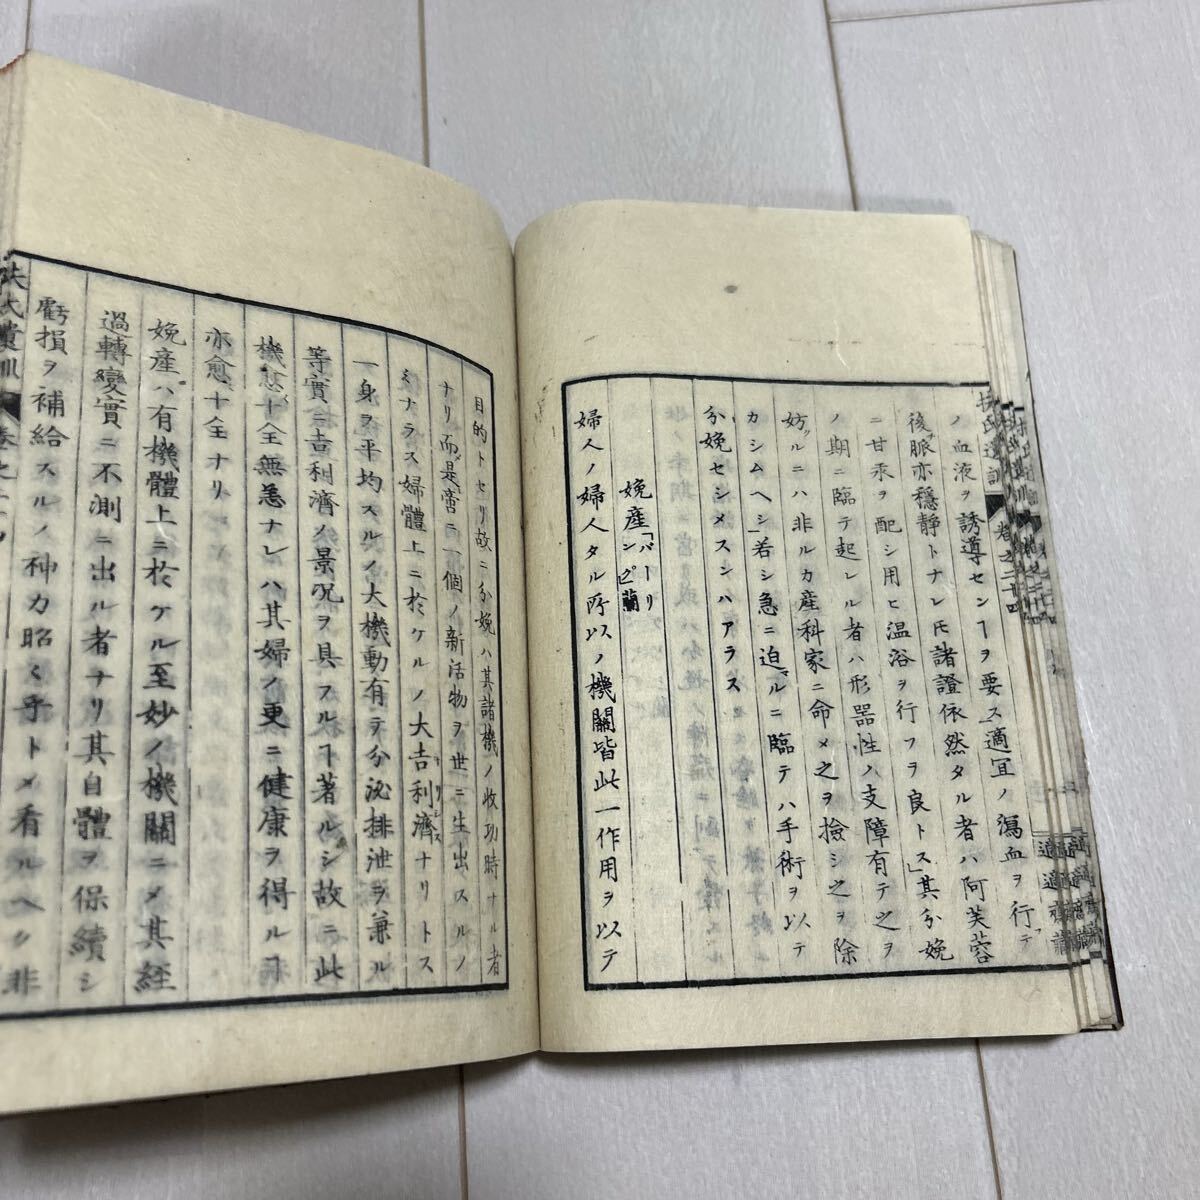 ノ血液ヲ誘導センヿヲ要ス」適宜ノ瀉血ヲ行テ
後脈亦穩靜トナレ𪜈諸證依然タル者ハ阿芙蓉
ニ甘汞ヲ配シ用ヒ温浴ヲ行フヲ良トス」其分娩
ノ期ニ臨テ起レル者ハ形器性ハ支障有テ之ヲ
妨ルニハ非ルカ産科家ニ命メ之ヲ撿シ之ヲ除
カシムヘシ」若シ急ニ迫ルニ臨テハ手術ヲ以テ
分娩セシメスンハアラス
娩産「バーリンピ」蘭
婦人ノ婦人タル所以ノ機關皆此一作用ヲ以テ
目的トセリ故ニ分娩ハ其諸機ノ收功時ナル者
ナリ而是啻ニ一個ノ新活物ヲ世ニ生出スルノ
ミナラス婦體上ニ於ケルノ大吉利濟ナリトス
一身ヲ平均スルノ大機動有テ分泌排泄ヲ兼ル
等實ニ吉利濟ノ景况ヲ具フルヿ著ルシ故ニ此
機慈十全無急ナレハ其婦ノ更ニ健康ヲ得ルヿ
亦愈十全ナリ
娩産ハ有機體上ニ於ケル至妙ノ機關ニメ其經
過轉變實ニ不測ニ出ル者ナリ其自體ヲ保續シ
虧損ヲ補給スルノ神力昭々乎トメ看ルヘシ非
扶氏遺訓 卷之二十四